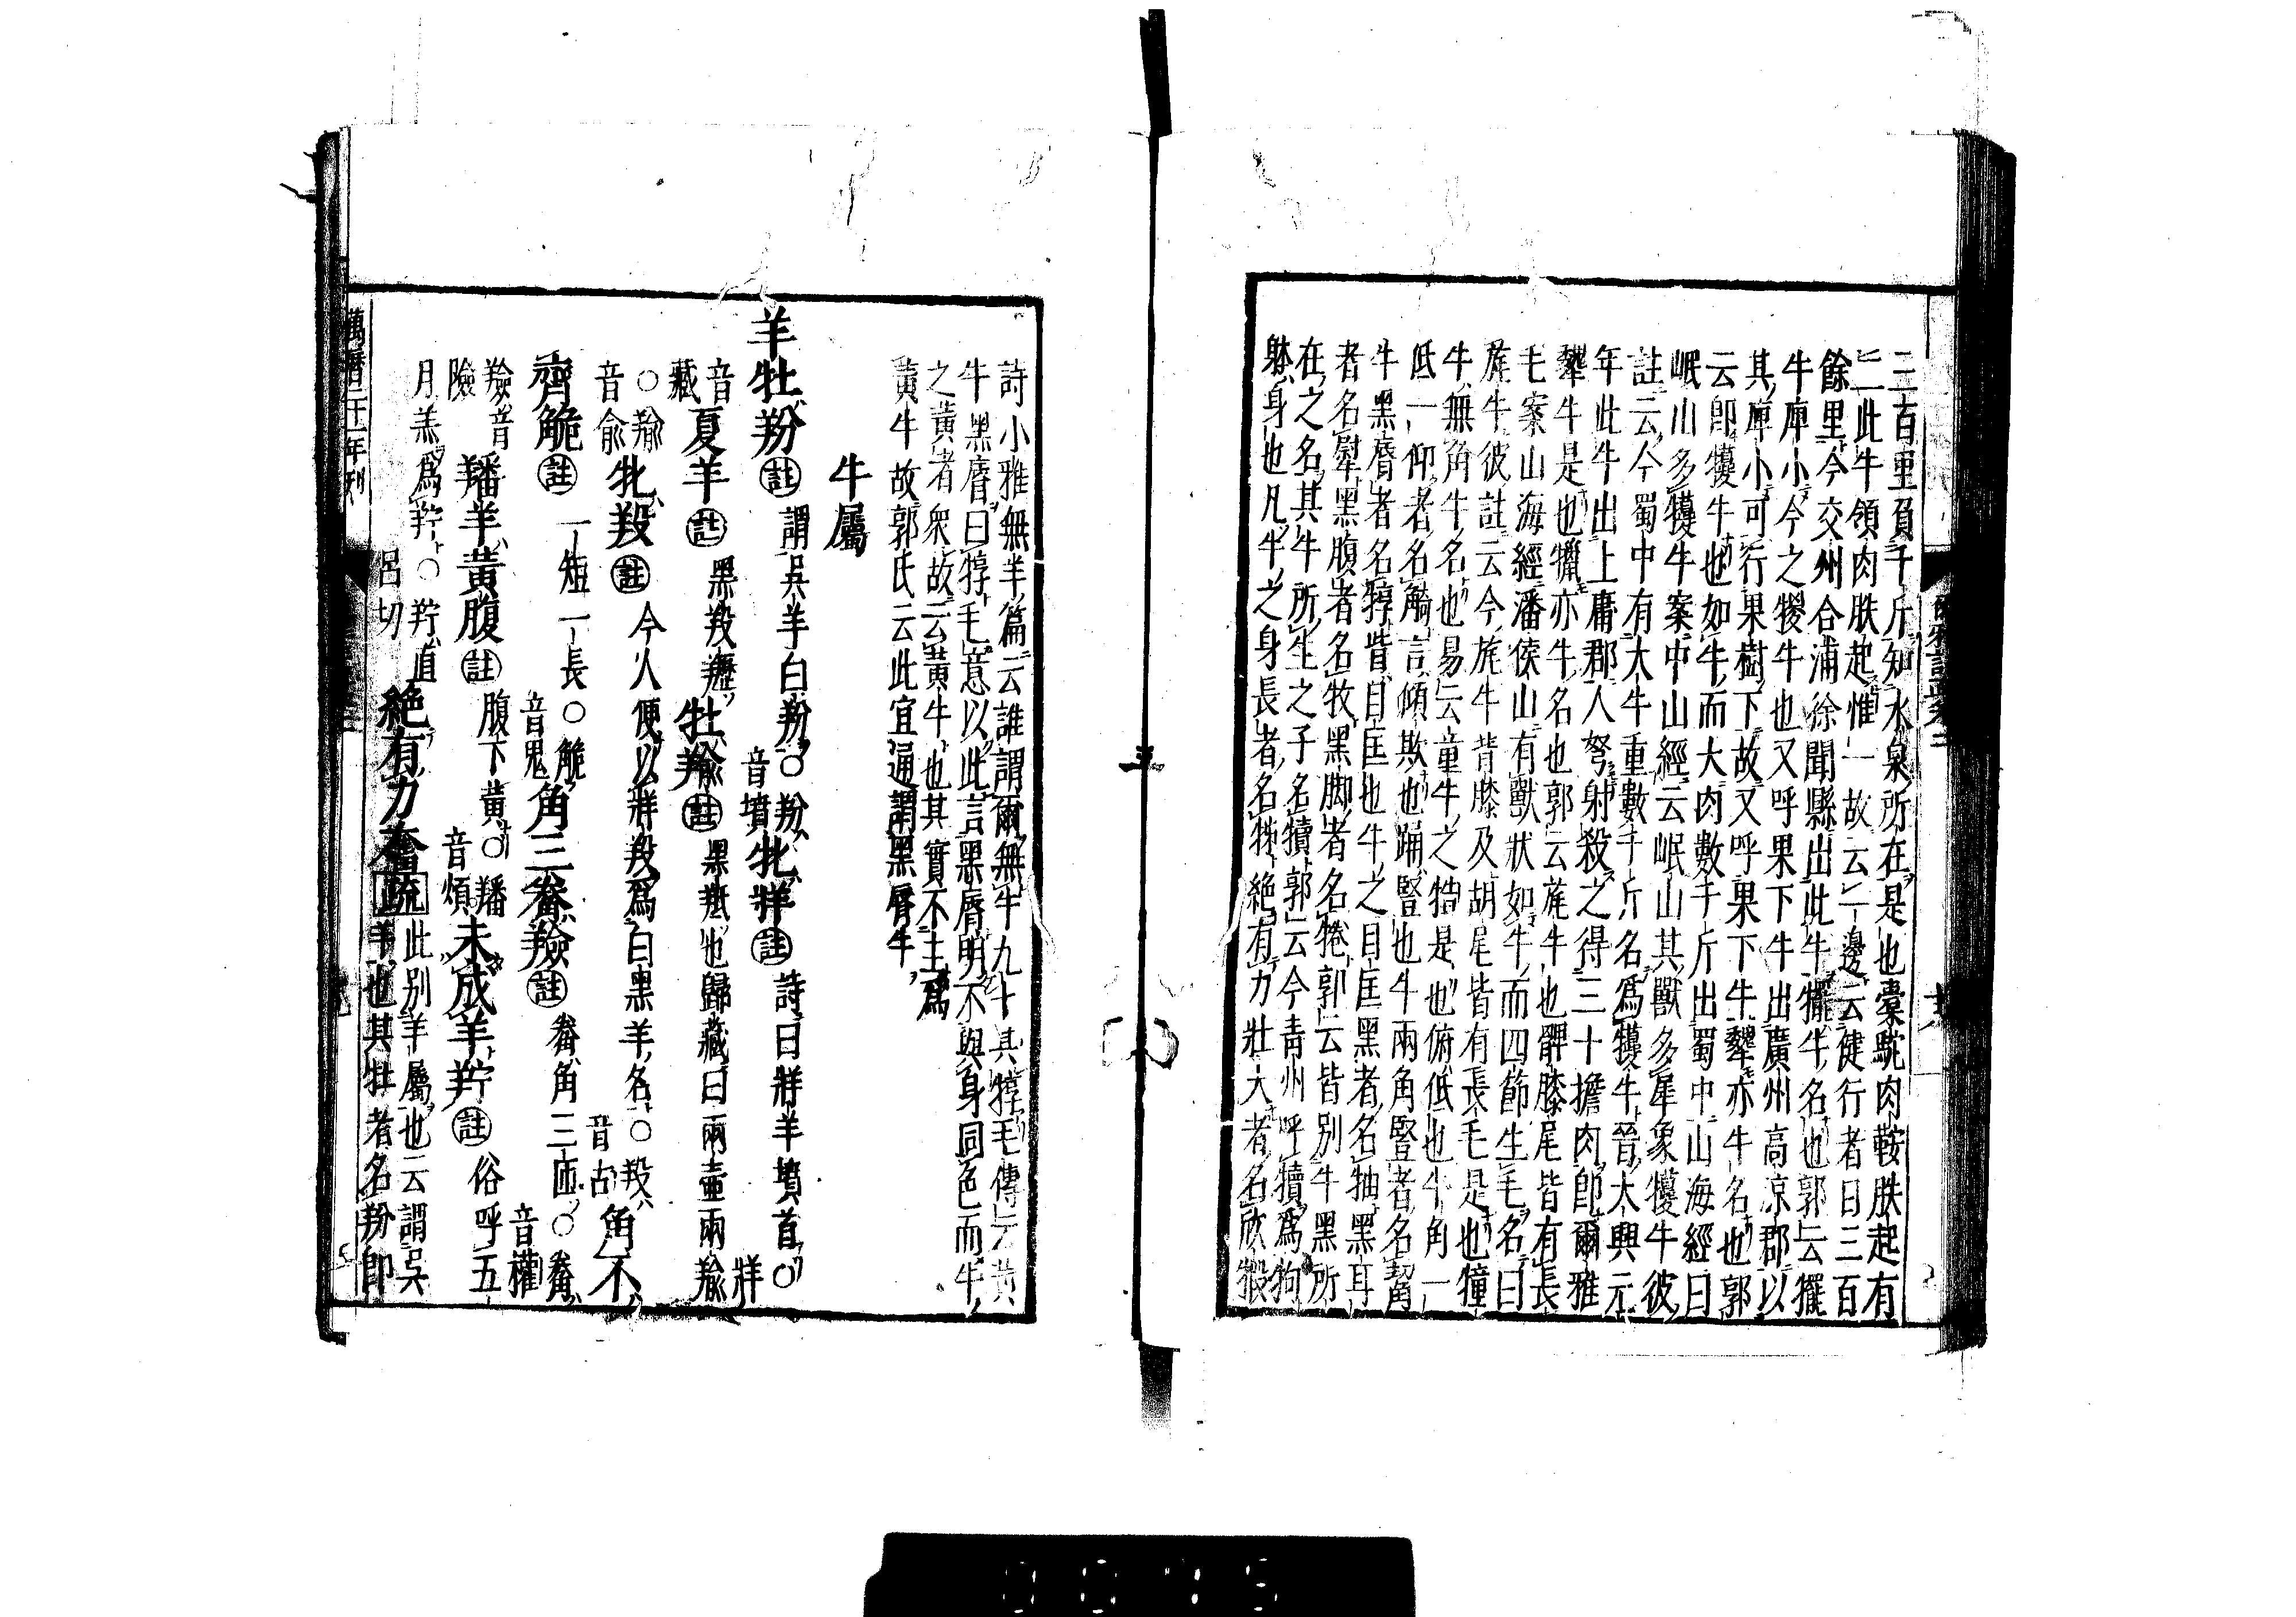 三百里負千斤知水泉所在是也橐駝肉鞍肤起有
二此牛領肉肤起惟一故云一邊云健行者日三百
餘里今交州合浦徐聞縣出此牛犤牛名也郭云犤
牛庳小今之㹎牛也又呼果下牛出廣州高涼郡以
其庳小可行果樹下故又呼果下牛犩亦牛名也郭
云即犪牛也如牛而大肉數千斤出蜀中山海經曰
岷山多犪牛案中山經云岷山其獸多犀象犪牛彼
註云今蜀中有大牛重數千斤名為犪牛晉大興元
年此牛出上庸郡人弩射殺之得三十擔肉即爾雅
犩牛是也犣亦牛名也郭云旄牛也髀膝尾皆有長
毛案山海經潘侯山有獸狀如牛而四節生毛名曰
旄牛彼註云今旄牛背膝及胡尾皆有長毛是也犝
牛無角牛名也易云童牛之牿是也俯低也牛角一
低一仰者名觭言傾欹也踊豎也牛兩角豎者名觢
牛黑脣者名犉眥目匡也牛之目匡黑者名牰黑耳
者名犚黑腹者名牧黑脚者名犈郭云皆別牛黑所
在之名其牛所生之子名犢郭云今青州呼犢為㸬
躰身也凡牛之身長者名牬絕有力壯大者名欣犌
爾雅註疏卷十一
詩小雅無羊篇云誰謂爾無牛九十其犉毛傳云黃
牛黑脣曰犉毛意以此言黑脣明不與身同色而牛
之黃者衆故云黃牛也其實不主爲
黃牛故郭氏云此宜通謂黑脣牛
牛屬
羊牡羒註謂吳羊白羒○羒音墳牝牂註詩曰牂羊墳首○牂
音藏夏羊註黑羖䍽牡羭註黑羝也歸藏曰兩壺兩羭
○羭音俞牝羖註今人便以牂羖爲白黑羊名○羖音古角不
齊觤註一短一長○觤音鬼角三觠羷註觠角三匝○觠音權
羷音險羳羊黃腹註腹下黃○羳音煩未成羊羜註俗呼五
月羔爲羜○羜直呂切絕有力奮疏羊也其牡者名羒即
此別羊屬也云謂吳
萬曆二十一年刊